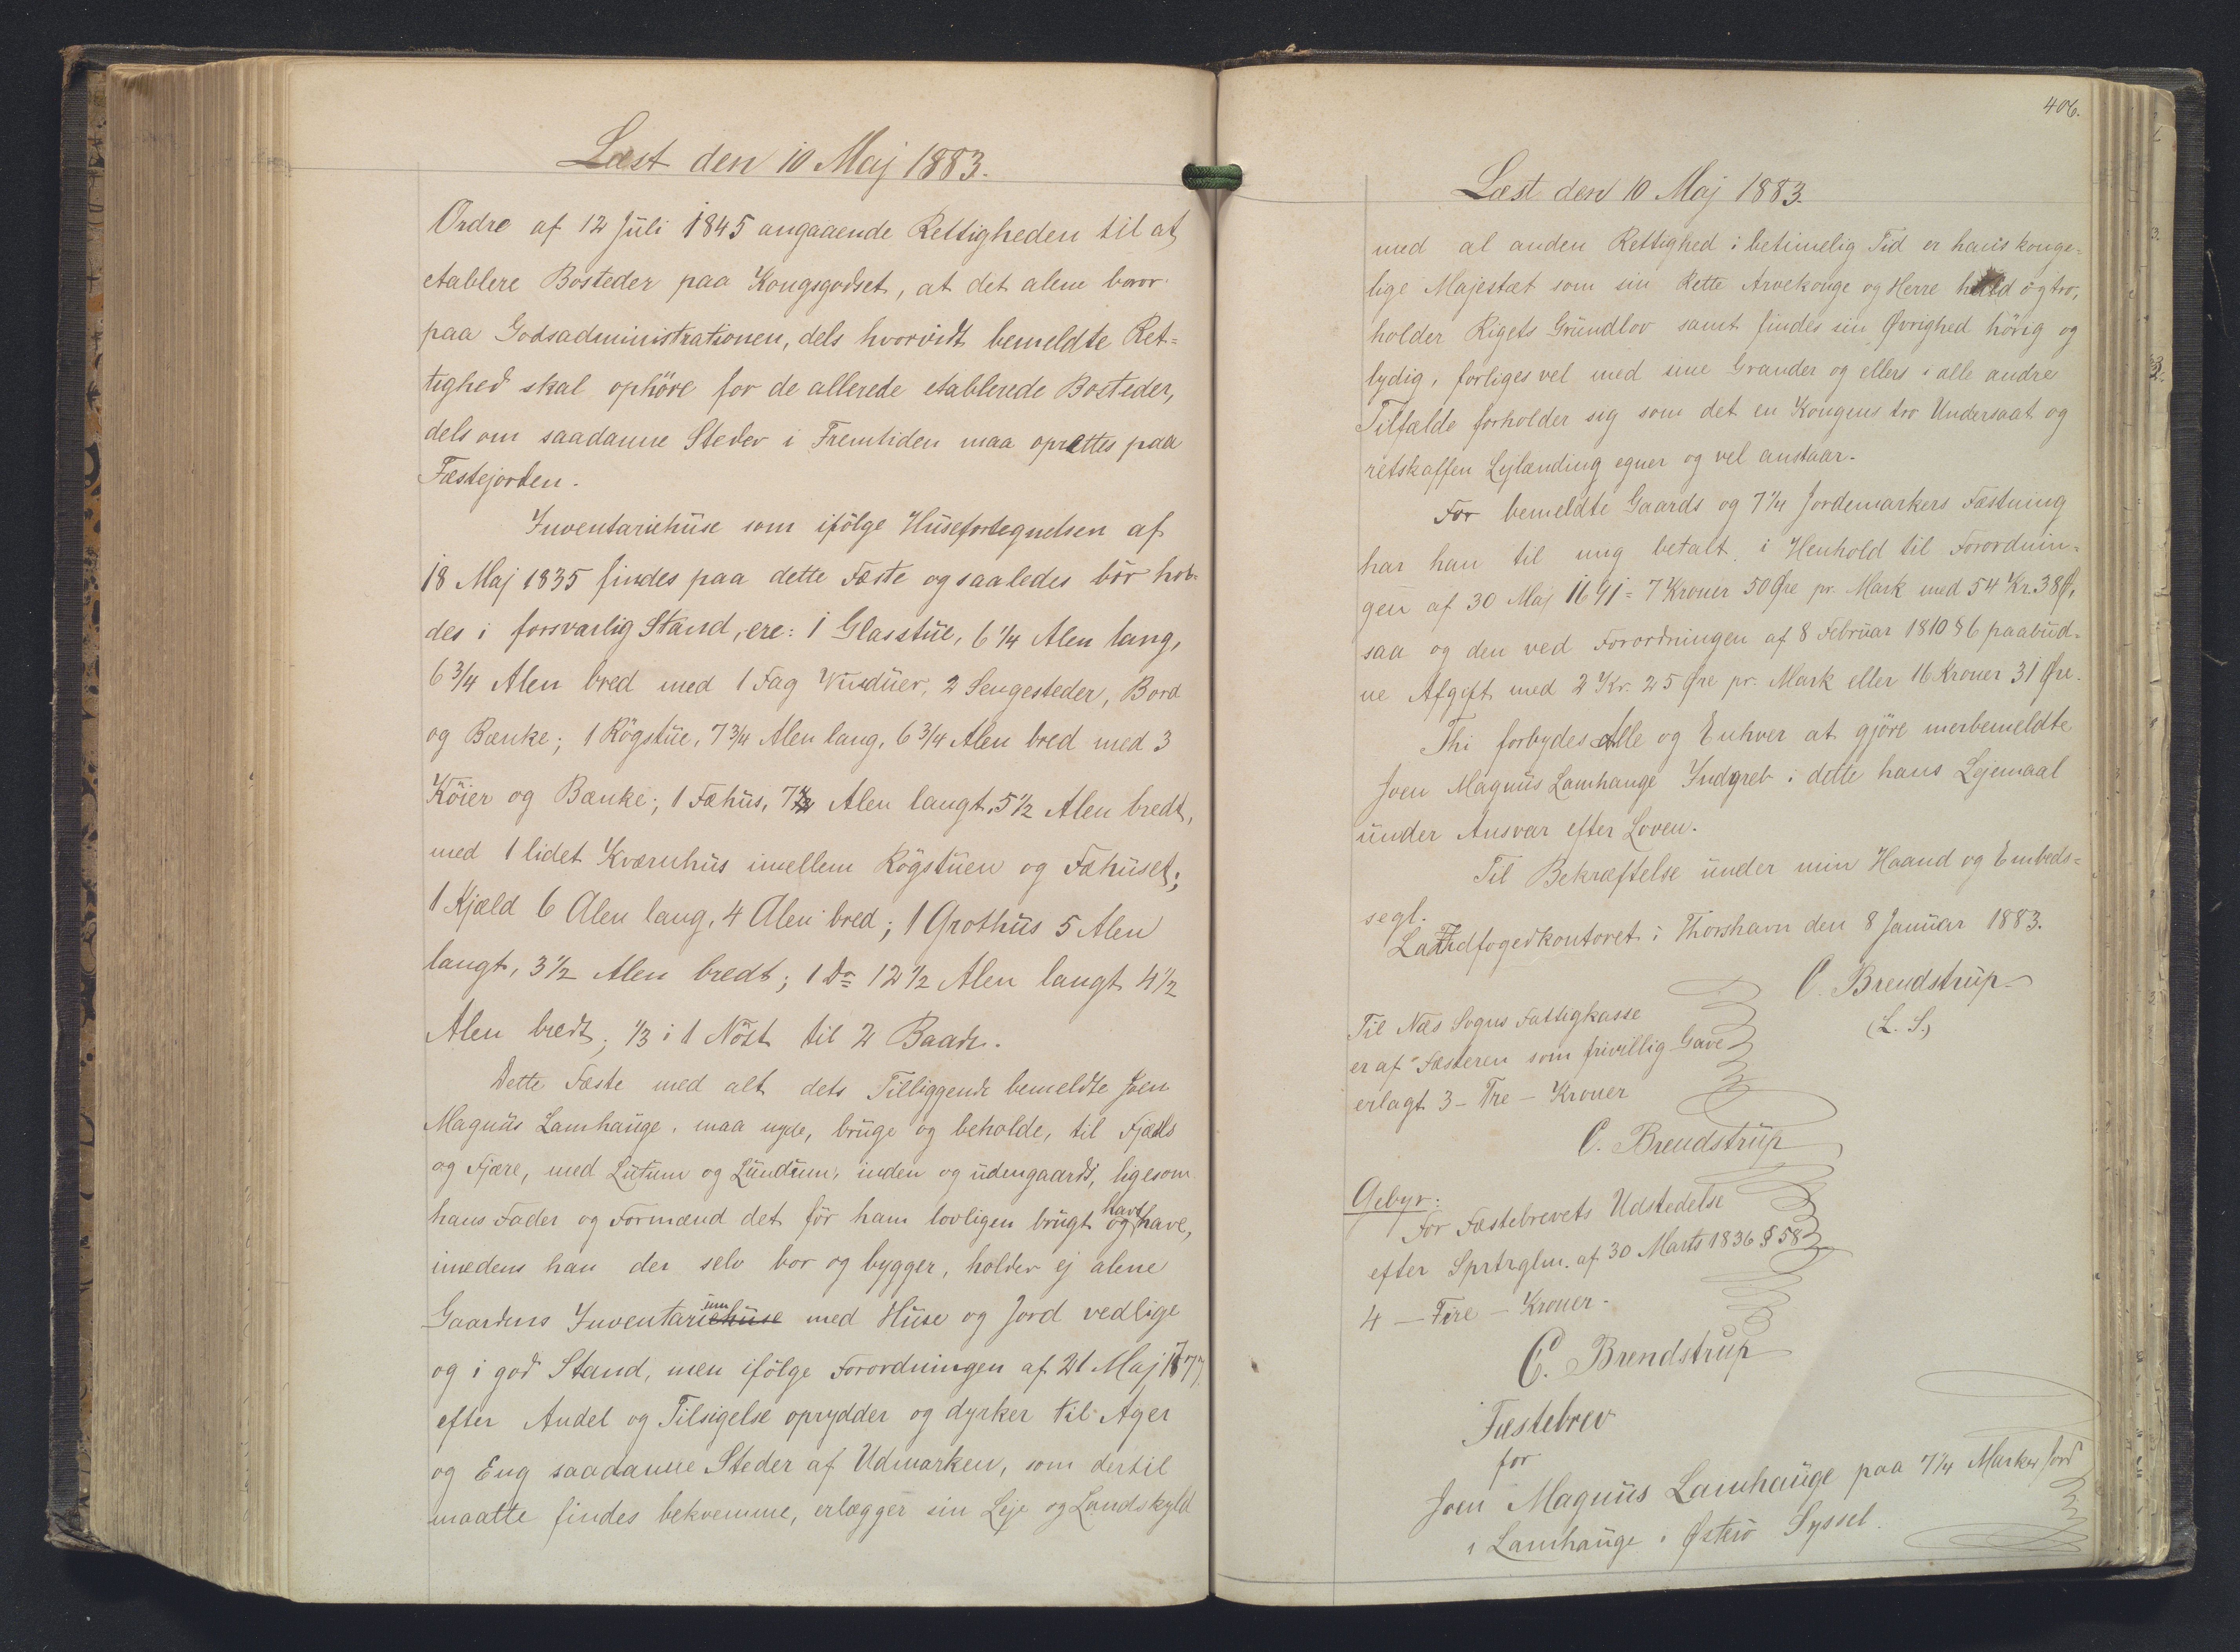 Læst den 10 Maj 1883.
Ordre af 12 Juli 1845 angaaende Rettigheden til at
etablere Bosteder paa Kongsgodset, at det alene beror
paa Godsadministrationen, dels hvorvidt bemeldte Ret-
tighed skal ophöre for de allerede etablerede Bosteder,
dels om saadanne Steder i Fremtiden maa oprettes paa
Fæstejorden.
Inventariehuse som ifölge Husefortegnelsen af
18 Maj 1835 findes paa dette Fæste og saaledes bör hol-
des i forsvarlig Stand, ere: 1 Glasstue, 6 1/4 Alen lang,
6 3/4 Alen bred med 1 Fag Vinduer, 2 Sengesteder, Bord
og Bænke; 1 Rögstue, 7 3/4 Alen lang, 6 3/4 Alen bred med 3
Köier og Bænke; 1 Fæhus, 7 Alen langt, 5 1/2 Alen bredt,
med 1 lidet Kværnhus imellem Rögstuen og Fæhuset;
1 Kjæld 6 Alen lang, 4 Alen bred; 1 Grothus 5 Alen
langt, 3 1/2 Alen bredt; 1 Do 12 1/2 Alen langt 4 1/2
Alen bredt; 1/3 i 1 Nöst til 2 Baade.
Dette Fæste med alt dets Tilliggende bemeldte Joen
Magnus Lamhauge, maa nyde, bruge og beholde, til Fjælds
og Fjære, med Lutum og Lundum, inden og udengaards, ligesom
hans Fader og Formænd det för ham lovligen brugt og havt have,
imedens han der selv bor og bygger, holder ej alene
Gaardens Inventarium med Huse og Jord vedlige
og i god Stand, men ifölge Forordningen af 21 Maj 1777
efter Andel og Tilsigelse oprydder og dyrker til Ager
og Eng saadanne Steder af Udmarken, som dertil
maatte findes bekvemme, erlægger sin Leje og Landskyld
406.
Læst den 10 Maj 1883.
med al anden Rettighed i betimelig Tid er hans konge-
lige Majestæt som sin Rette Arvekonge og Herre huld og tro,
holder Rigets Grundlov samt findes sin Øvrighed hörig og
lydig, forliges vel med sine Grander og ellers i alle andre
Tilfælde forholder sig som det en Kongens tro Undersaat og
retskaffen Lejlænding egner og vel anstaar.
For bemeldte Gaards og 7 1/4 Jordemarkers Fæstning
har han til mig betalt i Henhold til Forordnin-
gen af 30 Maj 1691 = 7 Kroner 50 Øre pr. Mark med 54 Kr. 38 Ø,
saa og den ved Forordningen af 8 Februar 1810 § 6 paabud-
ne Afgift med 2 Kr. 25 Øre pr. Mark eller 16 Kroner 31 Øre.
Thi forbydes Alle og Enhver at gjöre merbemeldte
Joen Magnus Lamhauge Indgreb i dette hans Lejemaal
under Ansvar efter Loven.
Til Bekræftelse under min Haand og Embeds-
segl.
Landfogedkontoret i Thorshavn den 8 Januar 1883.
C. Brendstrup
(L. S.)
Til Næs Sogns Fattigkasse
er af Fæsteren som frivillig Gave
erlagt 3 - Tre - Kroner
C. Brendstrup
Gebyr:
For Fæstebrevets Udstedelse
efter Sprtrglm. af 30 Marts 1836 § 58
4 - Fire - Kroner.
C. Brendstrup
Fæstebrev
for
Joen Magnus Lamhauge paa 7 1/4 Marker Jord
i Lamhauge i Østerö Syssel.